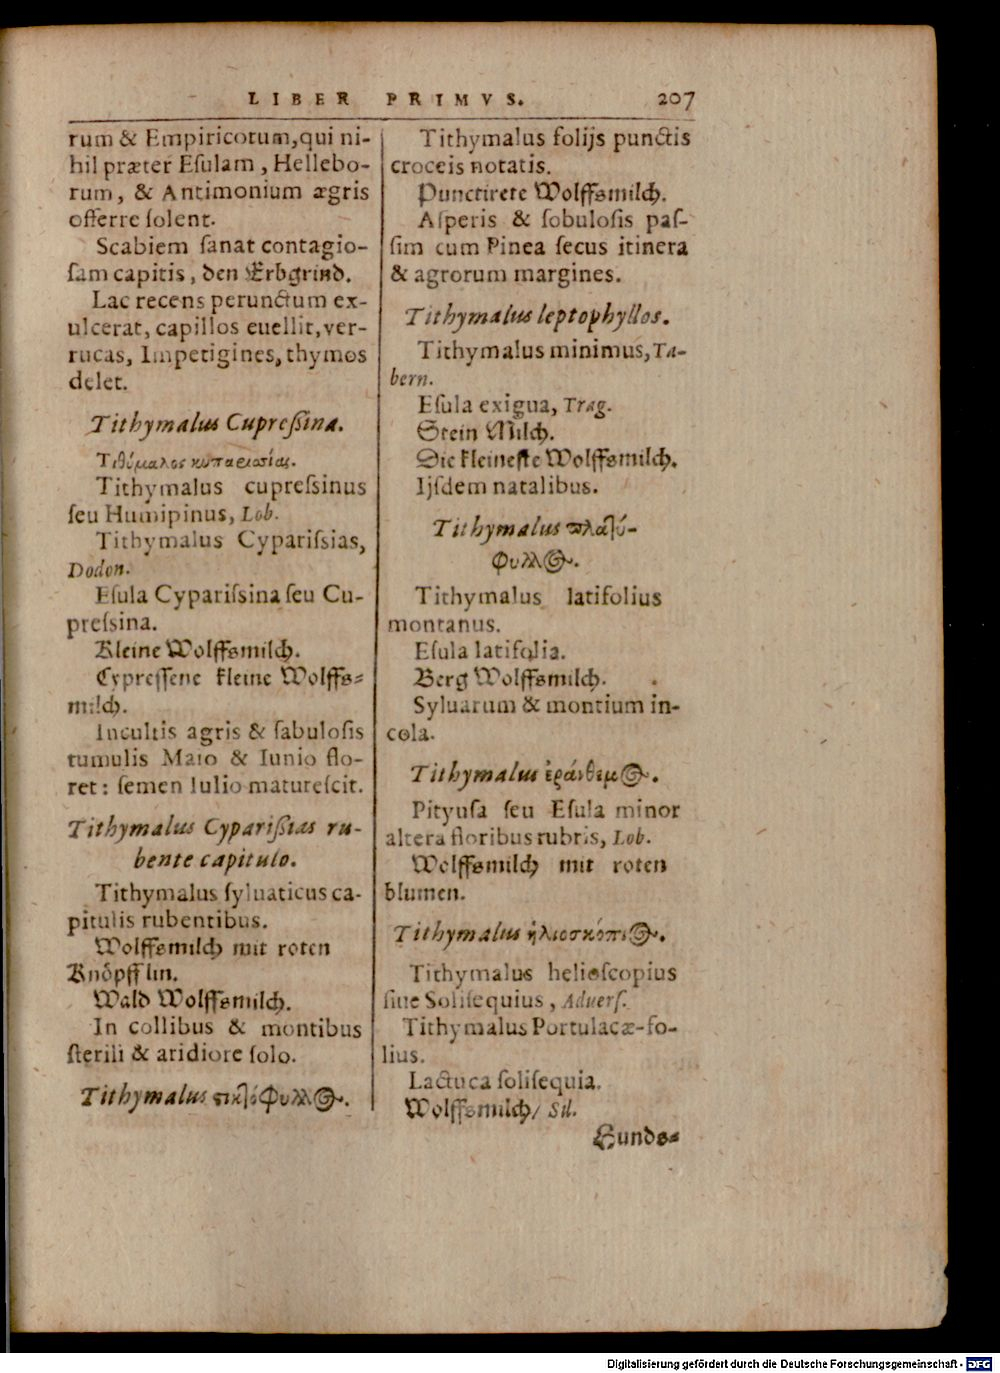 LIBER PRIMVS. 207
rum & Empiricorum, qui ni-
hil præter Eſulam, Hellebo-
rum, & Antimonium ægris
offerre ſolent.
Scabiem ſanat contagio-
ſam capitis, den Erbgrind.
Lac recens perunctum ex-
ulcerat, capillos euellit, ver-
rucas, Impetigines, thymos
delet.
Tithymalus Cupreßina.
Τιθύμαλος κυπαεισσίας.
Tithymalus cupreſsinus
ſeu Humipinus, Lob.
Tithymalus Cypariſsias,
Dodon.
Eſula Cypariſsina ſeu Cu-
preſsina.
Kleine Wolffsmilch.
Cypreſſene kleine Wolffs-
milch.
Incultis agris & ſabuloſis
tumulis Maio & Iunio flo-
ret: ſemen Iulio matureſcit.
Tithymalus Cyparißias ru-
bente capitulo.
Tithymalus ſyluaticus ca-
pitulis rubentibus.
Wolffsmilch mit roten
Knöpfflin.
Wald Wolffsmilch.
In collibus & montibus
ſterili & aridiore ſolo.
Tithymalus
Tithymalus folijs punctis
croceis notatis.
Punctirete Wolffsmilch.
Aſperis & ſobuloſis paſ-
ſim cum Pinea ſecus itinera
& agrorum margines.
Tithymalus leptophyllos.
Tithymalus minimus, Ta-
bern.
Eſula exigua, Trag.
Stein Milch.
Die kleineſte Wolffsmilch.
Ijſdem natalibus.
Tithymalus πλατύ-
φυλλος.
Tithymalus latifolius
montanus.
Eſula latifolia.
Berg Wolffsmilch.
Syluarum & montium in-
cola.
Tithymalus ἐράνθεμος.
Pityuſa ſeu Eſula minor
altera floribus rubris, Lob.
Wolffsmilch mit roten
blumen.
Tithymalus ἡλιοσκόπιος.
Tithymalus helioſcopius
ſiue Soliſequius, Adverſ.
Tithymalus Portulacæ-fo-
lius.
Lactuca ſoliſequia.
Wolffsmilch/ Sil.
Hunds-
Digitalisierung gefördert durch die Deutsche Forschungsgemeinschaft - DFG